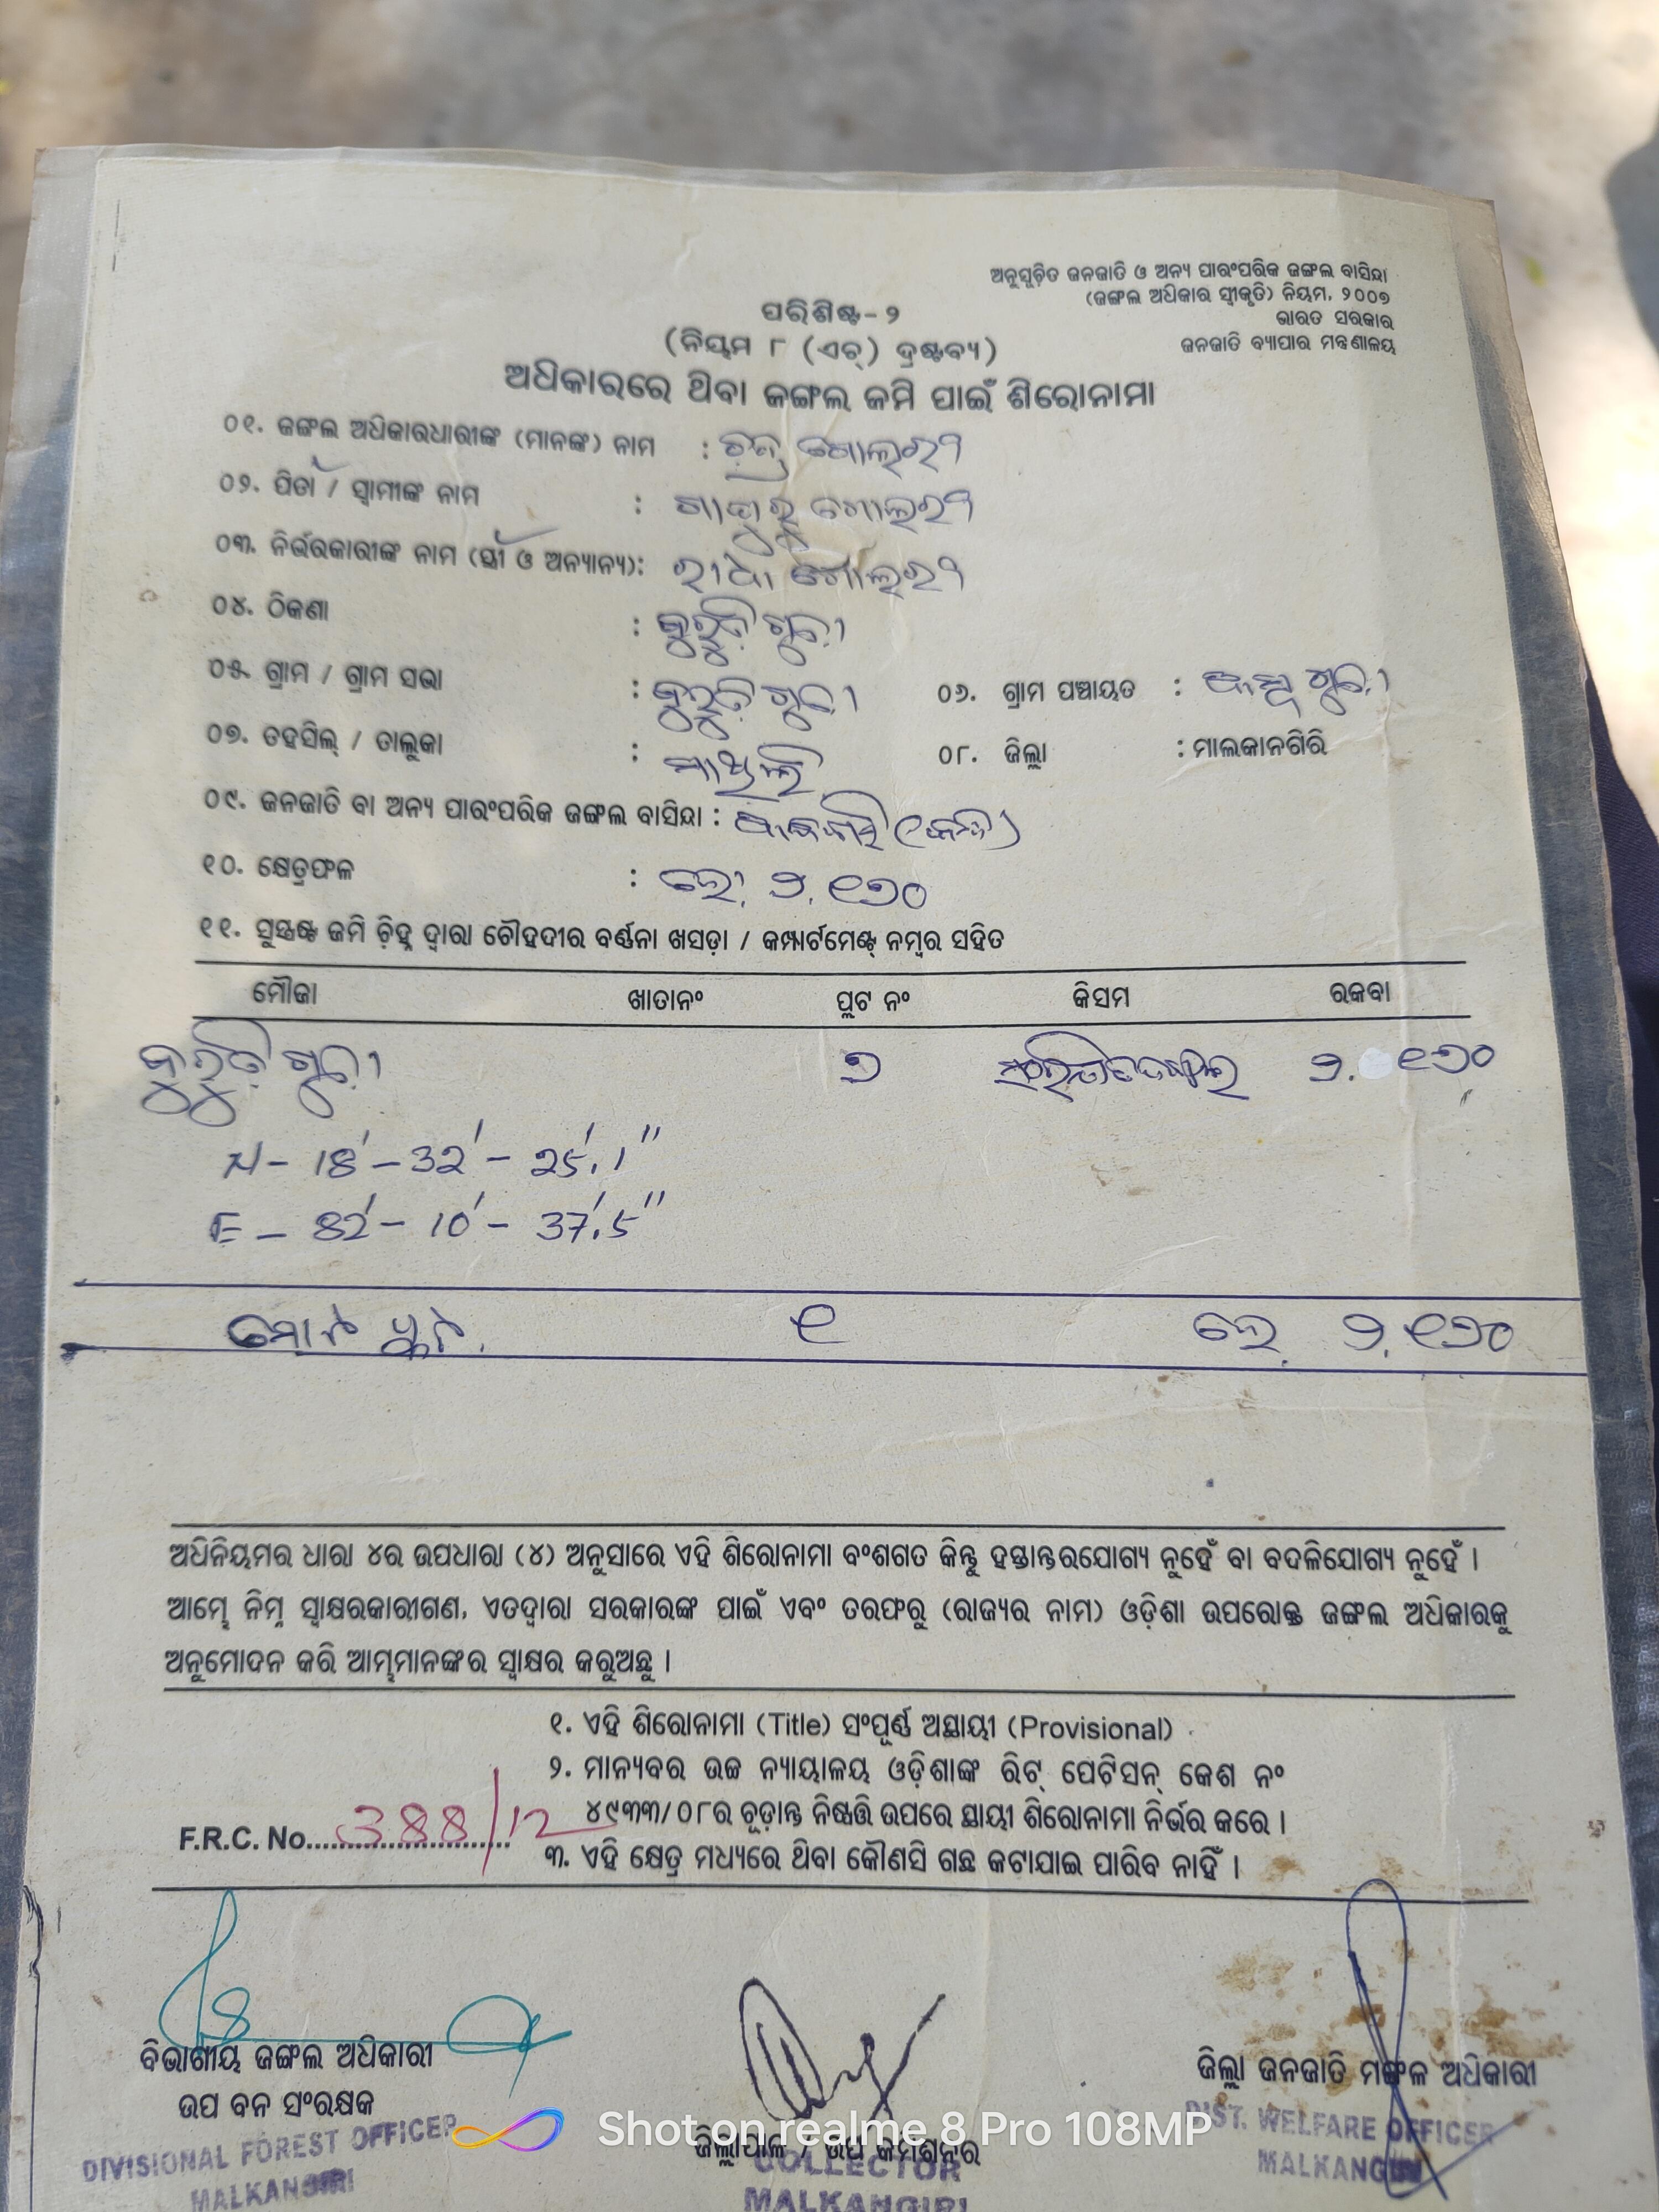 ଅନୁସୂଚିତ ଜନଜାତି ଓ ଅନ୍ୟ ପାରଂପରିକ ଜଙ୍ଗଲ ବାସିନ୍ଦା
(ଜଙ୍ଗଲ ଅଧିକାର ସ୍ୱୀକୃତି) ନିୟମ, ୨୦୦୭
ଭାରତ ସରକାର
ଜନଜାତି ବ୍ୟାପାର ମନ୍ତ୍ରଣାଳୟ
ପରିଶିଷ୍ଟ-୨
(ନିୟମ ୮ (ଏଚ୍) ଦ୍ରଷ୍ଟବ୍ୟ)
ଅଧିକାରରେ ଥିବା ଜଙ୍ଗଲ ଜମି ପାଇଁ ଶିରୋନାମା
୦୧. ଜଙ୍ଗଲ ଅଧିକାରଧାରୀଙ୍କ (ମାନଙ୍କ) ନାମ :
୦୨. ପିତା / ସ୍ୱାମୀଙ୍କ ନାମ :
୦୩. ନିର୍ଭରକାରୀଙ୍କ ନାମ (ସ୍ତ୍ରୀ ଓ ଅନ୍ୟାନ୍ୟ): ରାଧା
୦୪. ଠିକଣା :
୦୫. ଗ୍ରାମ / ଗ୍ରାମ ସଭା : ୦୬. ଗ୍ରାମ ପଞ୍ଚାୟତ :
୦୭. ତହସିଲ୍ / ତାଲୁକା : ମାଥିଲି ୦୮. ଜିଲ୍ଲା : ମାଲକାନଗିରି
୦୯. ଜନଜାତି ବା ଅନ୍ୟ ପାରଂପରିକ ଜଙ୍ଗଲ ବାସିନ୍ଦା :
୧୦. କ୍ଷେତ୍ରଫଳ : ୨.୧୬୦
୧୧. ସୁସ୍ପଷ୍ଟ ଜମି ଚିହ୍ନ ଦ୍ୱାରା ଚୌହଦୀର ବର୍ଣ୍ଣନା ଖସଡ଼ା / କମ୍ପାର୍ଟମେଣ୍ଟ୍ ନମ୍ବର ସହିତ
ମୌଜା ଖାତାନଂ ପ୍ଲଟ ନଂ କିସମ ରକବା
୨.୧୬୦
N- 18'-32'- 25'.1"
E- 82'- 10'- 37'.5"
୧ ୨.୧୬୦
ଅଧିନିୟମର ଧାରା ୪ର ଉପଧାରା (୪) ଅନୁସାରେ ଏହି ଶିରୋନାମା ବଂଶଗତ କିନ୍ତୁ ହସ୍ତାନ୍ତରଯୋଗ୍ୟ ନୁହେଁ ବା ବଦଳିଯୋଗ୍ୟ ନୁହେଁ ।
ଆମ୍ଭେ ନିମ୍ନ ସ୍ୱାକ୍ଷରକାରୀଗଣ, ଏତଦ୍ୱାରା ସରକାରଙ୍କ ପାଇଁ ଏବଂ ତରଫରୁ (ରାଜ୍ୟର ନାମ) ଓଡ଼ିଶା ଉପରୋକ୍ତ ଜଙ୍ଗଲ ଅଧିକାରକୁ
ଅନୁମୋଦନ କରି ଆମ୍ଭମାନଙ୍କର ସ୍ୱାକ୍ଷର କରୁଅଛୁ ।
୧. ଏହି ଶିରୋନାମା (Title) ସଂପୂର୍ଣ୍ଣ ଅସ୍ଥାୟୀ (Provisional)
୨. ମାନ୍ୟବର ଉଚ୍ଚ ନ୍ୟାୟାଳୟ ଓଡ଼ିଶାଙ୍କ ରିଟ୍ ପେଟିସନ୍ କେଶ ନଂ
୪୯୩୩/୦୮ର ଚୂଡ଼ାନ୍ତ ନିଷ୍ପତ୍ତି ଉପରେ ସ୍ଥାୟୀ ଶିରୋନାମା ନିର୍ଭର କରେ ।
F.R.C. No. 388/12
୩. ଏହି କ୍ଷେତ୍ର ମଧ୍ୟରେ ଥିବା କୌଣସି ଗଛ କଟାଯାଇ ପାରିବ ନାହିଁ ।
ବିଭାଗୀୟ ଜଙ୍ଗଲ ଅଧିକାରୀ
ଉପ ବନ ସଂରକ୍ଷକ
DIVISIONAL FOREST OFFICER
MALKANGIRI
ଜିଲ୍ଲାପାଳ / ଉପ କମିଶନର
COLLECTOR
MALKANGIRI
ଜିଲ୍ଲା ଜନଜାତି ମଙ୍ଗଳ ଅଧିକାରୀ
DIST. WELFARE OFFICER
MALKANGIRI
Shot on realme 8 Pro 108MP